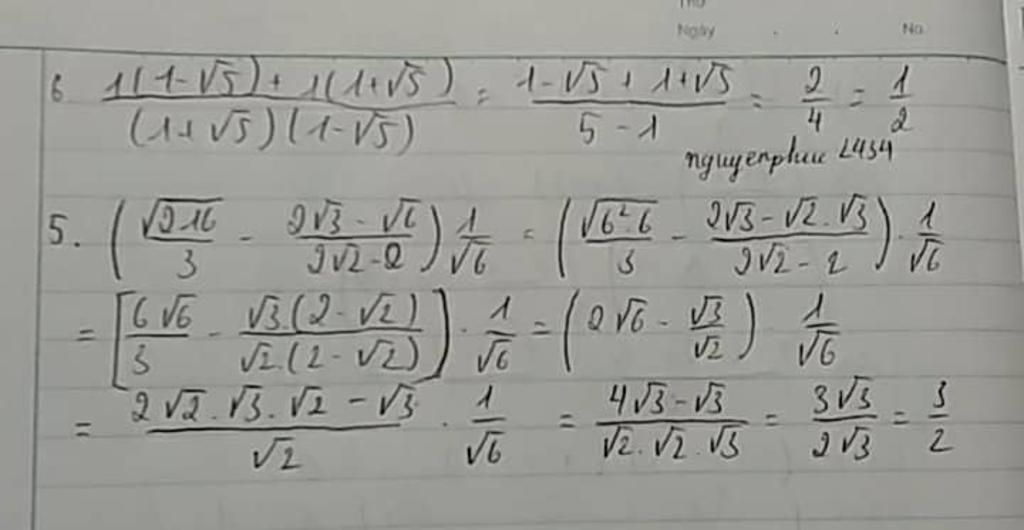 Thứ
Ngày . . No.
6 (1(1-√5) + 1(1+√5))/((1+√5)(1-√5)) = (1-√5 + 1+√5)/(5-1) = 2/4 = 1/2
nguyenphuc 2434
5. (√216/3 - (2√3-√6)/(2√2-2)) 1/√6 = (√(6²·6)/3 - (2√3-√2.√3)/(2√2-2)) . 1/√6
= [6√6/3 - √3.(2-√2)/(√2.(2-√2))] . 1/√6 = (2√6 - √3/√2) 1/√6
= (2√2.√3.√2 - √3)/√2 . 1/√6 = (4√3-√3)/(√2.√2.√3) = 3√3/(2√3) = 3/2